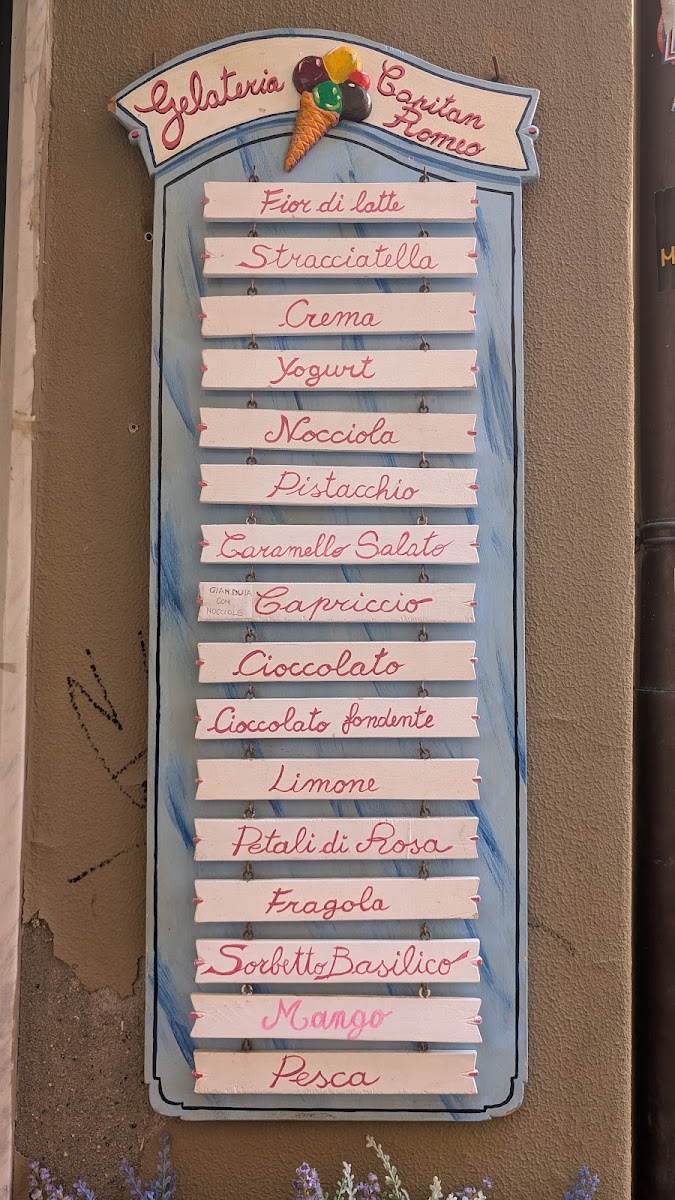 Gelateria Capitan
Romeo
Fior di latte
Stracciatella
Crema
Yogurt
Nocciola
Pistacchio
Caramello Salato
GIANDUIA
CON
NOCCIOLE
Capriccio
Cioccolato
Cioccolato fondente
Limone
Petali di Rosa
Fragola
Sorbetto Basilico
Mango
Pesca